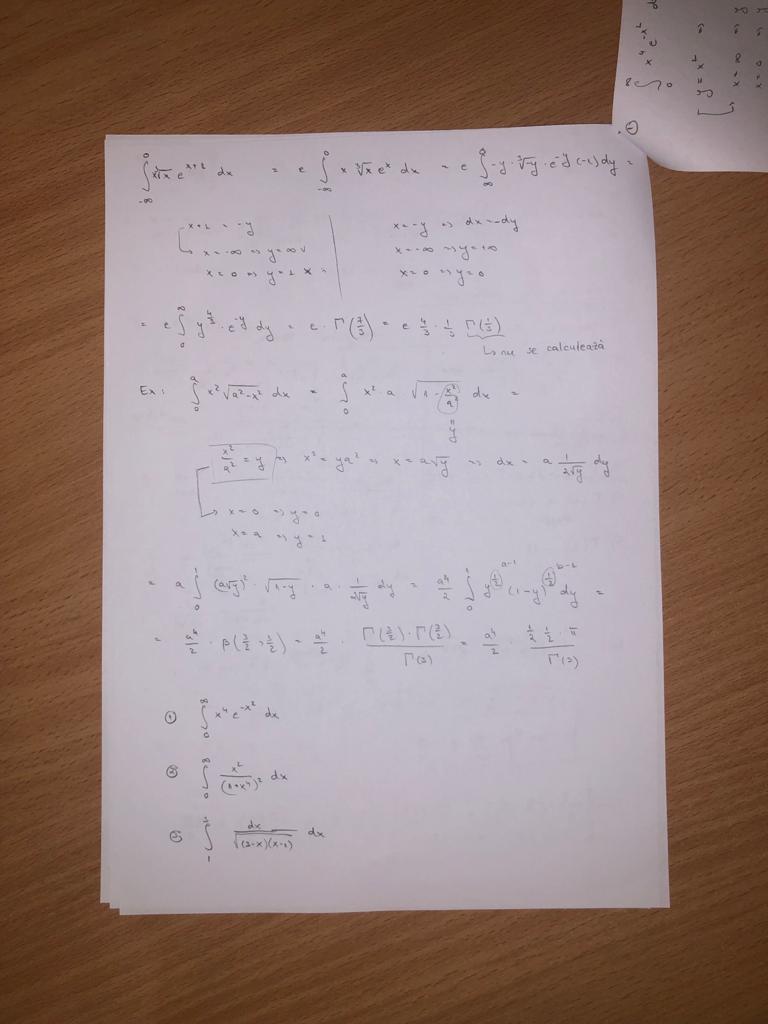 ∫_{-∞}^{0} x∛x e^{x+1} dx = e ∫_{-∞}^{0} x ∛x e^x dx = e ∫_{∞}^{0} -y · ∛-y · e^{-y} (-1) dy =
x+1 = -y
x = -∞ => y = ∞ ✓
x = 0 => y = 1 ×
x = -y => dx = -dy
x = -∞ => y = +∞
x = 0 => y = 0
= e ∫_{0}^{∞} y^{4/3} · e^{-y} dy = e · Γ(7/3) = e 4/3 · 1/3 Γ(1/3)
↳ nu se calculează
Ex: ∫_{0}^{a} x² √(a²-x²) dx = ∫_{0}^{a} x² · a √(1 - x²/a²) dx =
"y
x²/a² = y => x² = ya² => x = a√y => dx = a 1/(2√y) dy
x = 0 => y = 0
x = a => y = 1
= a ∫_{0}^{1} (a√y)² · √(1-y) · a · 1/(2√y) dy = a⁴/2 ∫_{0}^{1} y^{1/2} ^{a-1} (1-y)^{1/2} ^{b-1} dy =
= a⁴/2 · β(3/2, 3/2) = a⁴/2 · Γ(3/2) · Γ(3/2) / Γ(3) = a⁴/2 · 1/2 · 1/2 · π / Γ(3)
① ∫_{0}^{∞} x⁴ e^{-x²} dx
② ∫_{0}^{∞} x²/(1+x⁴)² dx
③ ∫_{1}^{3} dx/√((3-x)(x-1)) dx
① ∫_{0}^{∞} x⁴ e^{-x²} d
y = x² =>
x = ∞ => y
x = 0 => y